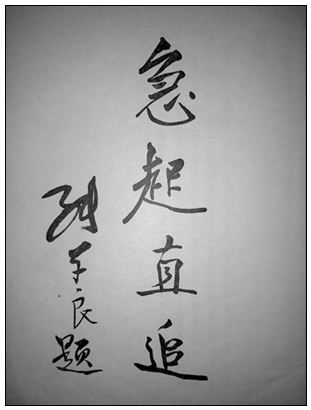 急起直追
张学良题